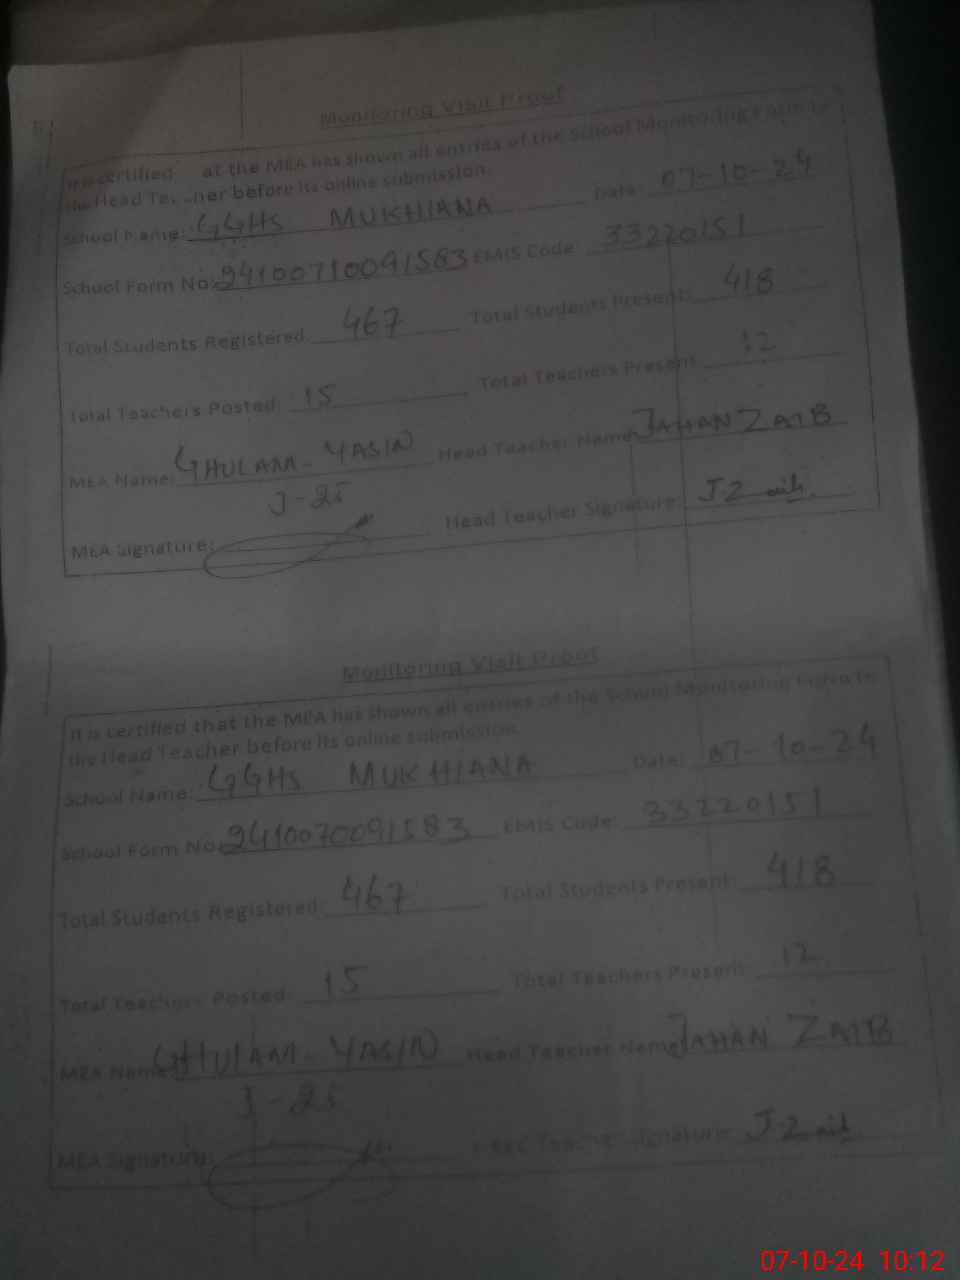 Monitoring Visit Proof
It is certified at the MEA has shown all entries of the School Monitoring Form to
the Head Teacher before its online submission.
School Name: GGHS MUKHIANA Date: 07-10-24
School Form No: 94100710091583 EMIS Code: 33220151
Total Students Registered 467 Total Students Present: 418
Total Teachers Posted: 15 Total Teachers Present: 12
MEA Name: GHULAM-YASIN Head Teacher Name JAHAN ZAIB
J-25
MEA Signature: Head Teacher Signature: J-Zaib
Monitoring Visit Proof
It is certified that the MEA has shown all entries of the School Monitoring Form to
the Head Teacher before its online submission.
School Name: GGHS MUKHIANA Date: 07-10-24
School Form No: 9410070091583 EMIS Code: 33220151
Total Students Registered: 467 Total Students Present: 418
Total Teachers Posted: 15 Total Teachers Present: 12
MEA Name: GHULAM-YASIN Head Teacher Name JAHAN ZAIB
J-25
MEA Signature: Teacher Signature: J-Zaib
07-10-24 10:12